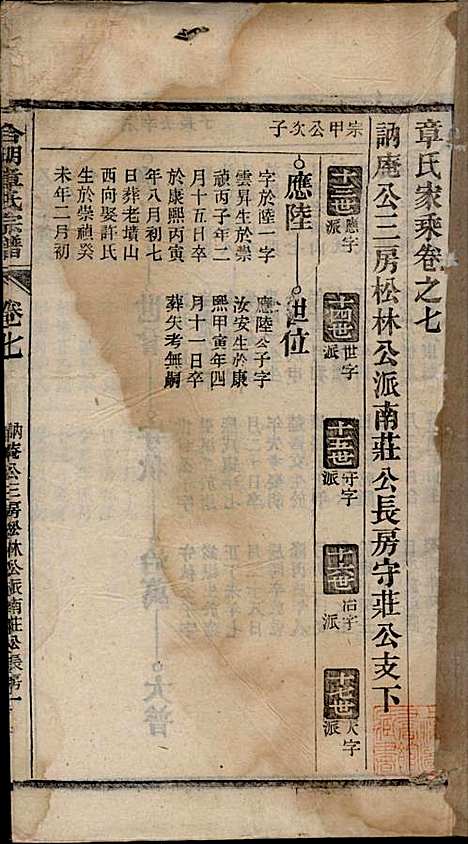 章氏家乘卷之七
訥庵公三房松林公派南莊公長房守莊公支下
宗甲公次子
十三世 應字派
十四世 世字派
十五世 守字派
十六世 派
十七世 大字派
應陸
字於陸一字
雲昇生於崇
禎丙子年二
月十五日卒
於康熙丙寅
年八月初七
日葬老墳山
西向娶許氏
生於崇禎癸
未年二月初
世位
應陸公子字
汝安生於康
熙甲寅年四
月十一日卒
葬失考無嗣
合朋章氏宗譜
卷七
訥庵公三房松林公派南莊公長房
一